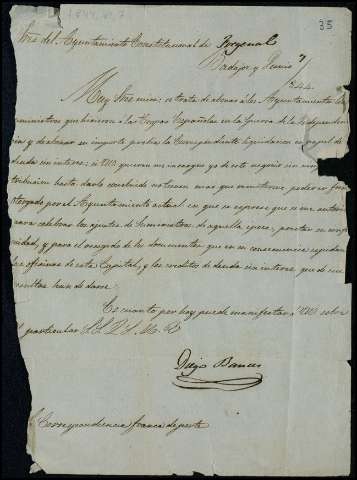 1844.VI.7
35
Sres del Ayuntamiento Constitucional de Fregenal
Badajoz y Junio 7
844
Muy Sres mios: se trata de abonar á los Ayuntamientos los
suministros que hicieron á las Tropas Españolas en la Guerra de la Independen
cia, y de abonar su importe previa la Correspondiente liquidacion en papel de
deuda sin interes; si VSS quieren me encargue yo de este negocio sin mas
hasta darlo concluido no tienen mas que remitirme poder en forma
otorgado por el Ayuntamiento actual en que se esprese que se me autoriza
para celebrar los ajustes de Suministros de aquella epoca, prestar su
y para el recogido de los documentos que en su consecuencia espidan
las oficinas de esta Capital, y los creditos de deuda sin interes que de sus
resultas han de darse.
Es cuanto por hoy puede manifestar á VSS sobre
el particular S. S. Q. S. M. B.
Diego
La Correspondencia franca de porte